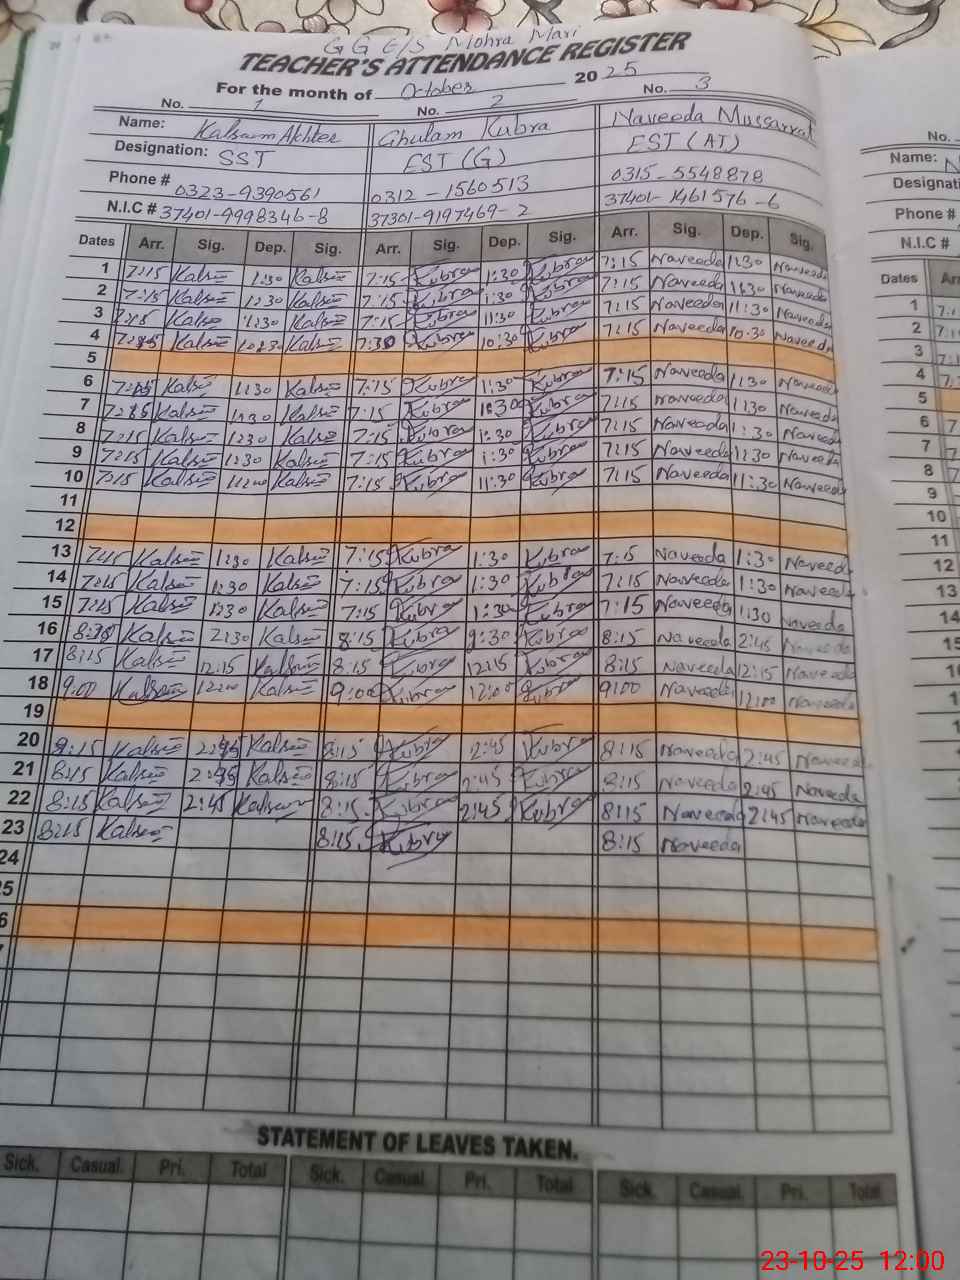 G G E/S Mohra Mari
TEACHER'S ATTENDANCE REGISTER
For the month of October 2025
No. 1 No. 2 No. 3
Name: Kalsum Akhter Ghulam Kubra Naveeda Mussarrat
Designation: SST EST (G) EST (AT)
Phone # 0323-9390561 0312-1560513 0315-5548878
N.I.C # 37401-9998346-8 37301-9197469-2 37401-1461576-6
Dates Arr. Sig. Dep. Sig. Arr. Sig. Dep. Sig. Arr. Sig. Dep. Sig.
1 7:15 Kalsum 1:30 Kalsum 7:15 Kubra 1:30 Kubra 7:15 Naveeda 1:30 Naveeda
2 7:15 Kalsum 1:30 Kalsum 7:15 Kubra 1:30 Kubra 7:15 Naveeda 1:30 Naveeda
3 7:15 Kalsum 11:30 Kalsum 7:15 Kubra 11:30 Kubra 7:15 Naveeda 11:30 Naveeda
4 Kalsum Kalsum 7:30 Kubra 10:30 Kubra 7:15 Naveeda 10:30 Naveeda
5
6 7:15 Kalsum 1:30 Kalsum 7:15 Kubra 1:30 Kubra 7:15 Naveeda 1:30 Naveeda
7 7:15 Kalsum 1:30 Kalsum 7:15 Kubra 1:30 Kubra 7:15 Naveeda 1:30 Naveeda
8 7:15 Kalsum 1:30 Kalsum 7:15 Kubra 1:30 Kubra 7:15 Naveeda 1:30 Naveeda
9 7:15 Kalsum 1:30 Kalsum 7:15 Kubra 1:30 Kubra 7:15 Naveeda 1:30 Naveeda
10 7:15 Kalsum Kalsum 7:15 Kubra 11:30 Kubra 7:15 Naveeda 11:30 Naveeda
11
12
13 7:15 Kalsum 1:30 Kalsum 7:15 Kubra 1:30 Kubra 7:15 Naveeda 1:30 Naveeda
14 7:15 Kalsum 1:30 Kalsum 7:15 Kubra 1:30 Kubra 7:15 Naveeda 1:30 Naveeda
15 7:15 Kalsum 1:30 Kalsum 7:15 Kubra 1:30 Kubra 7:15 Naveeda 1:30 Naveeda
16 Kalsum 2:30 Kalsum 8:15 Kubra Kubra 8:15 Naveeda 2:45 Naveeda
17 8:15 Kalsum 12:15 Kalsum 8:15 Kubra 12:15 Kubra 8:15 Naveeda 12:15 Naveeda
18 9:00 Kalsum 12:00 Kalsum 9:00 Kubra 12:00 Kubra 9:00 Naveeda 12:00 Naveeda
19
20 8:15 Kalsum 2:45 Kalsum 8:15 Kubra 2:45 Kubra 8:15 Naveeda 2:45 Naveeda
21 8:15 Kalsum 2:45 Kalsum 8:15 Kubra 2:45 Kubra 8:15 Naveeda 2:45 Naveeda
22 8:15 Kalsum 2:45 Kalsum 8:15 Kubra 2:45 Kubra 8:15 Naveeda 2:45 Naveeda
23 8:15 Kalsum 8:15 Kubra 8:15 Naveeda
24
5
6
STATEMENT OF LEAVES TAKEN.
Sick. Casual. Pri. Total Sick. Casual Pri. Total Sick. Casual. Pri. Total
No.
Name:
Designati
Phone #
N.I.C #
Dates Ar
1
2
3
4
5
6
7
8
9
10
11
12
13
14
23-10-25 12:00